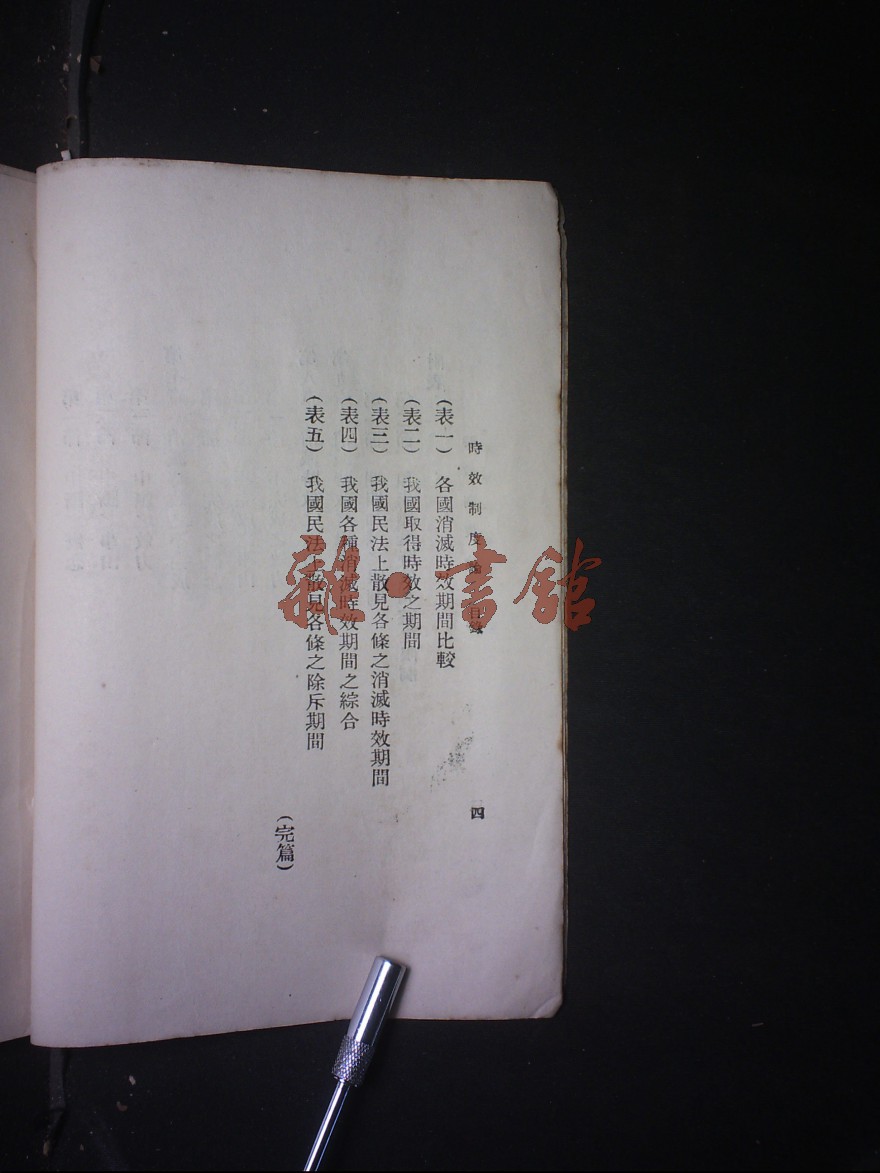 時效制度論 目錄 四
(表一) 各國消滅時效期間比較
(表二) 我國取得時效之期間
(表三) 我國民法上散見各條之消滅時效期間
(表四) 我國各種消滅時效期間之綜合
(表五) 我國民法上散見各條之除斥期間
(完篇)
雜·書館